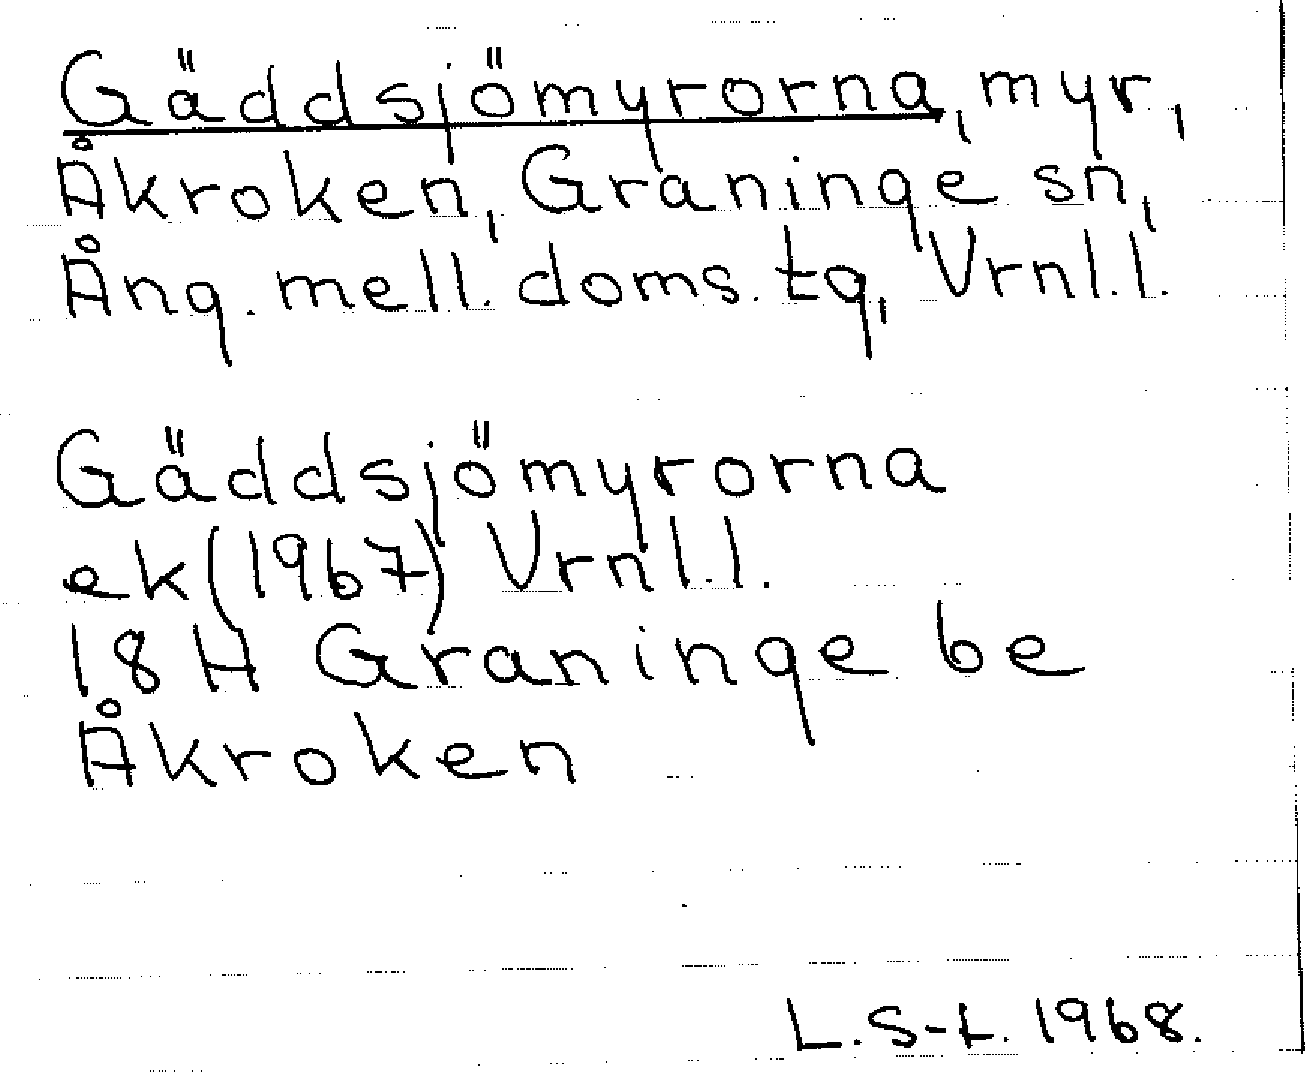 Gäddsjömyrorna, myr,
Åkroken, Graninge sn,
Ång. mell. doms. tg, Vrnl.l.
Gäddsjömyrorna
ek (1967) Vrnl.l.
18 H Graninge be
Åkroken
L.S-L. 1968.